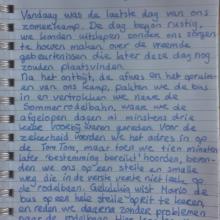 Vandaag was de laatste dag van ons
zomerkamp. De dag begon rustig,
we konden uitslapen zonder ons zorgen
te hoeven maken over de vreemde
gebeurtenissen die later deze dag nog
zouden plaatsvinden.
Na het ontbijt, de afwas en het opruimen
van ons kamp, pakten we de bus
in en vertrokken we naar de
Sommerrodelbahn, waar we de
afgelopen dagen al minstens drie
keer voorbij waren gereden. Voor de
zekerheid voerden we het adres in op
de TomTom, maar toen we tien minuten
later 'bestemming bereikt' hoorden, bevon-
den we ons op een steile en smalle
weg die in de verste verte niet leek op
de rodelbaan. Gelukkig wist Mario de
bus op een hele steile oprit te keren,
en reden we daarna zonder problemen
naar de rodelbaan